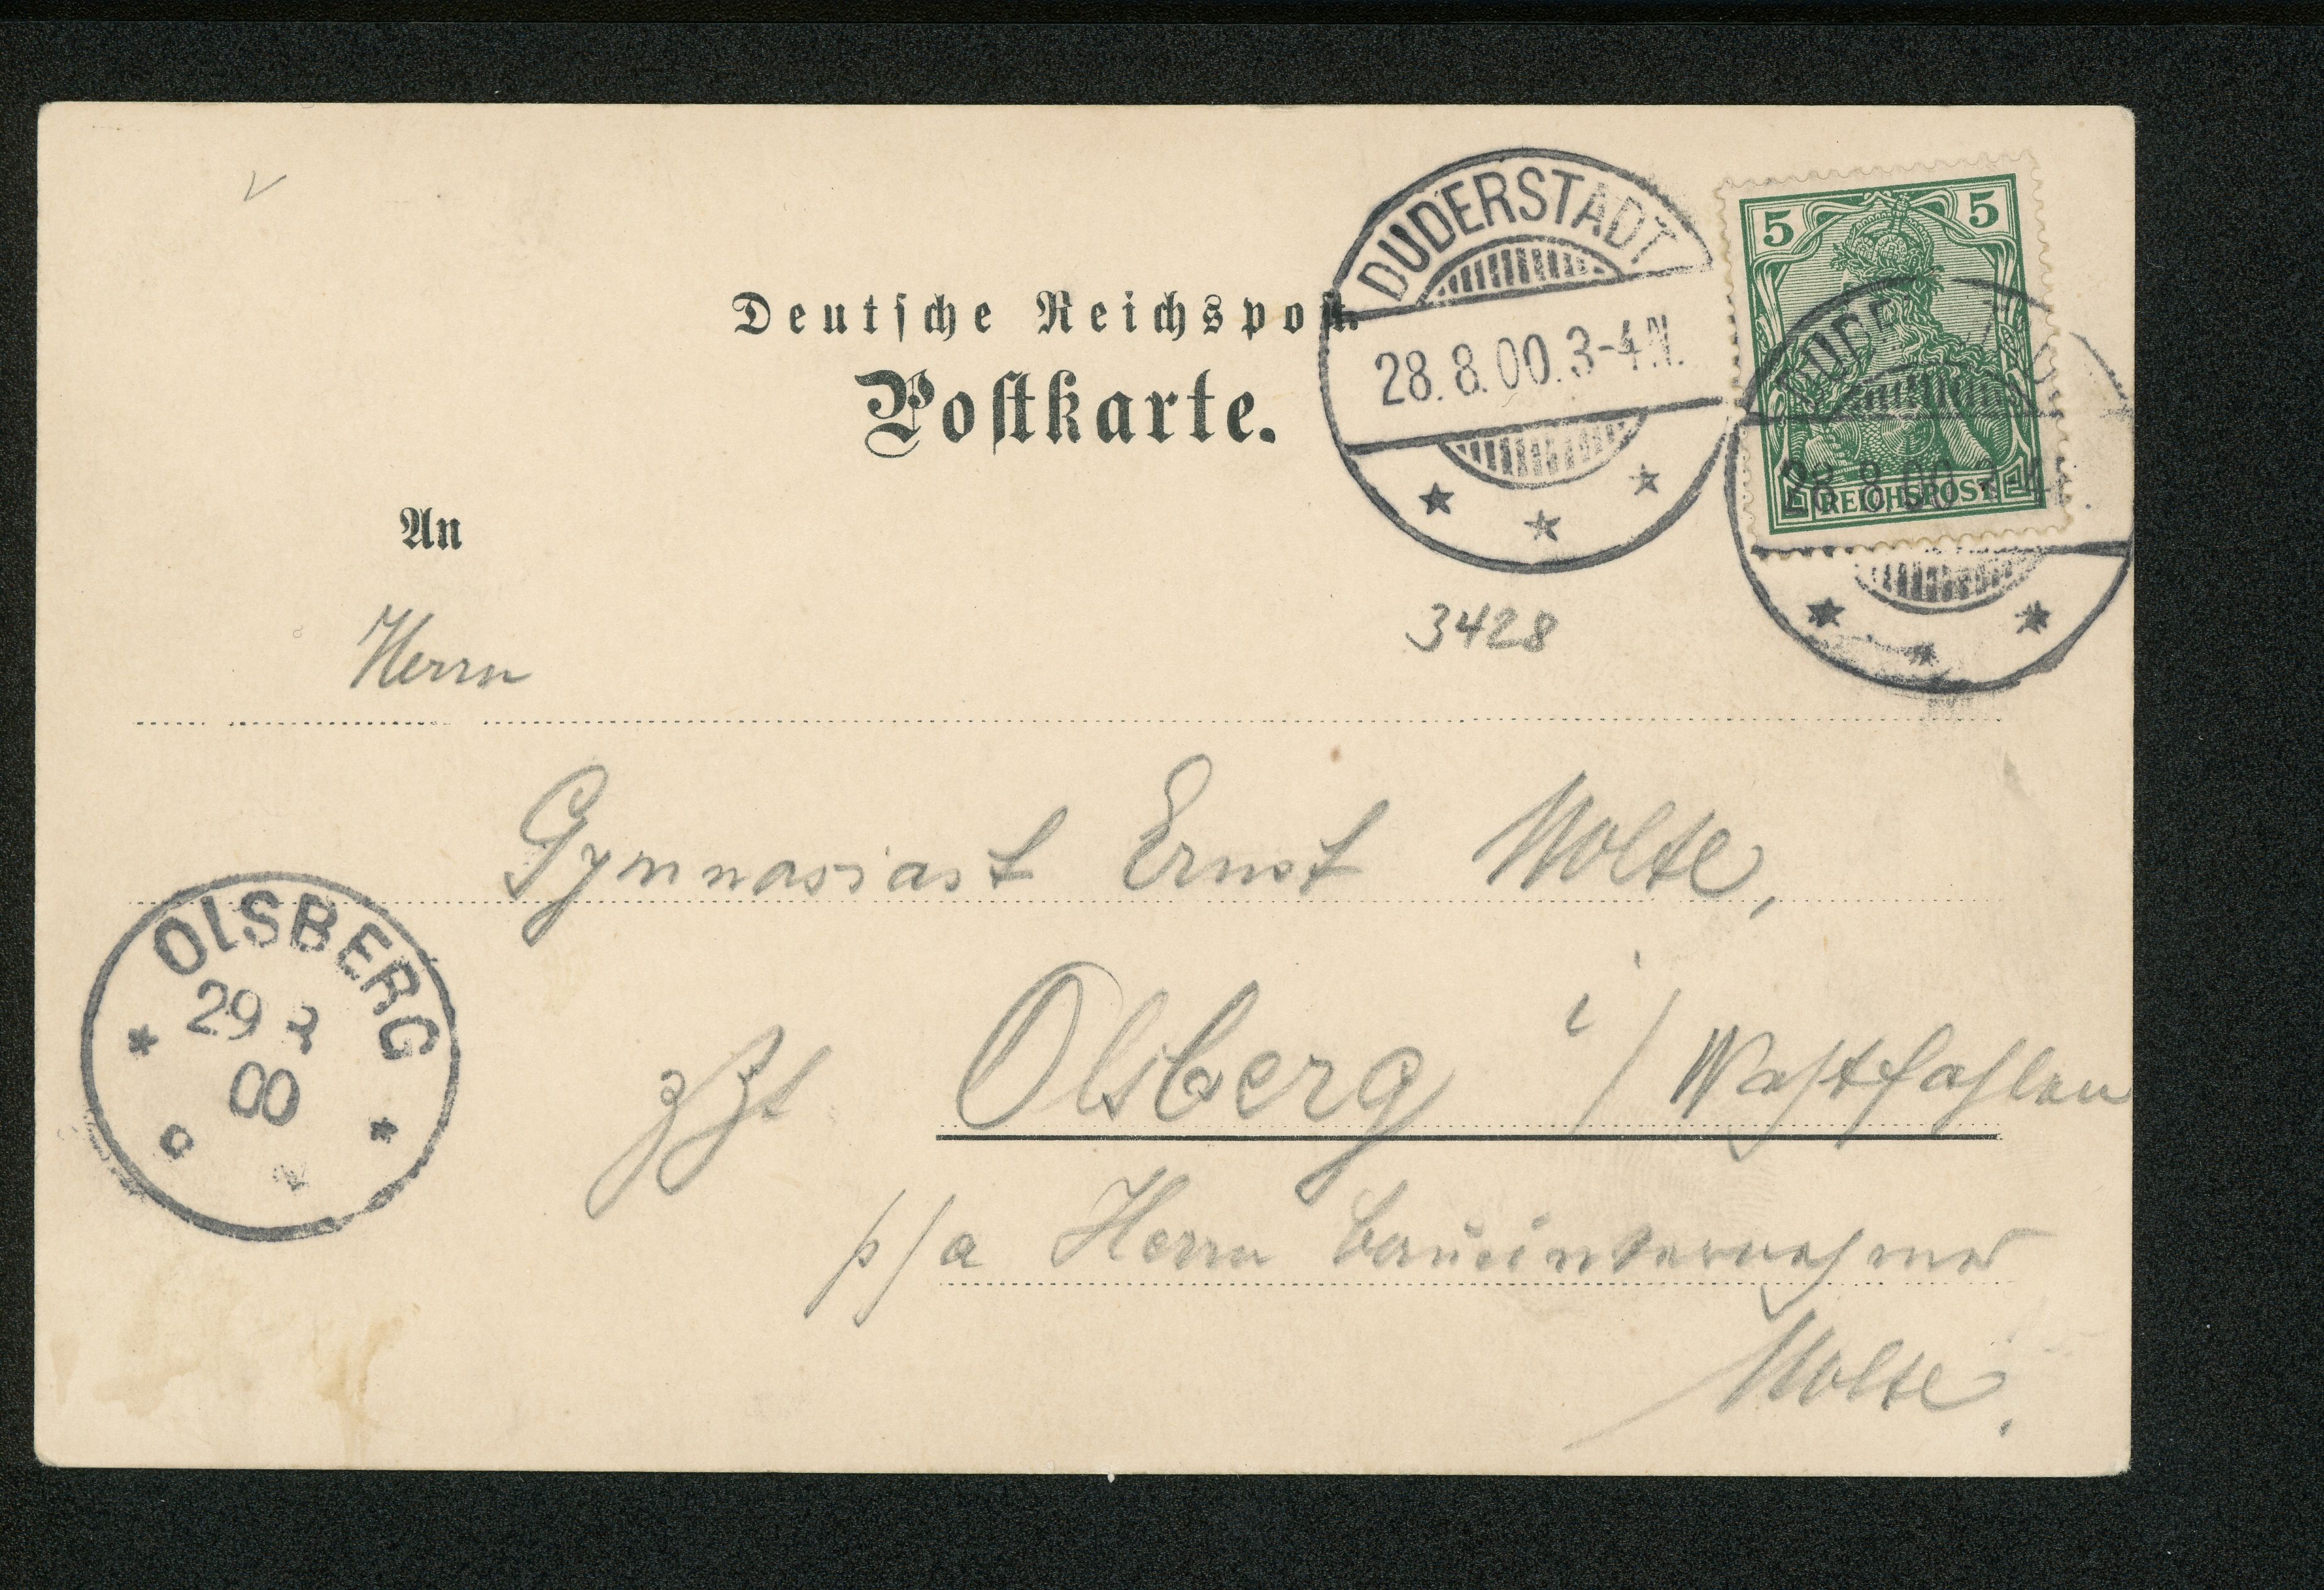 Deutsche Reichspost.
Postkarte.
An
DUDERSTADT
28. 8. 00. 3-4 N.
5 5
REICHSPOST
28. 8. 00 3-4
3428
Herrn
Gymnasiast Ernst Nolte,
zZt Olsberg i/Westfahlen
p/a Herrn Bauunternehmer
Nolte.
OLSBERG
29 8
00